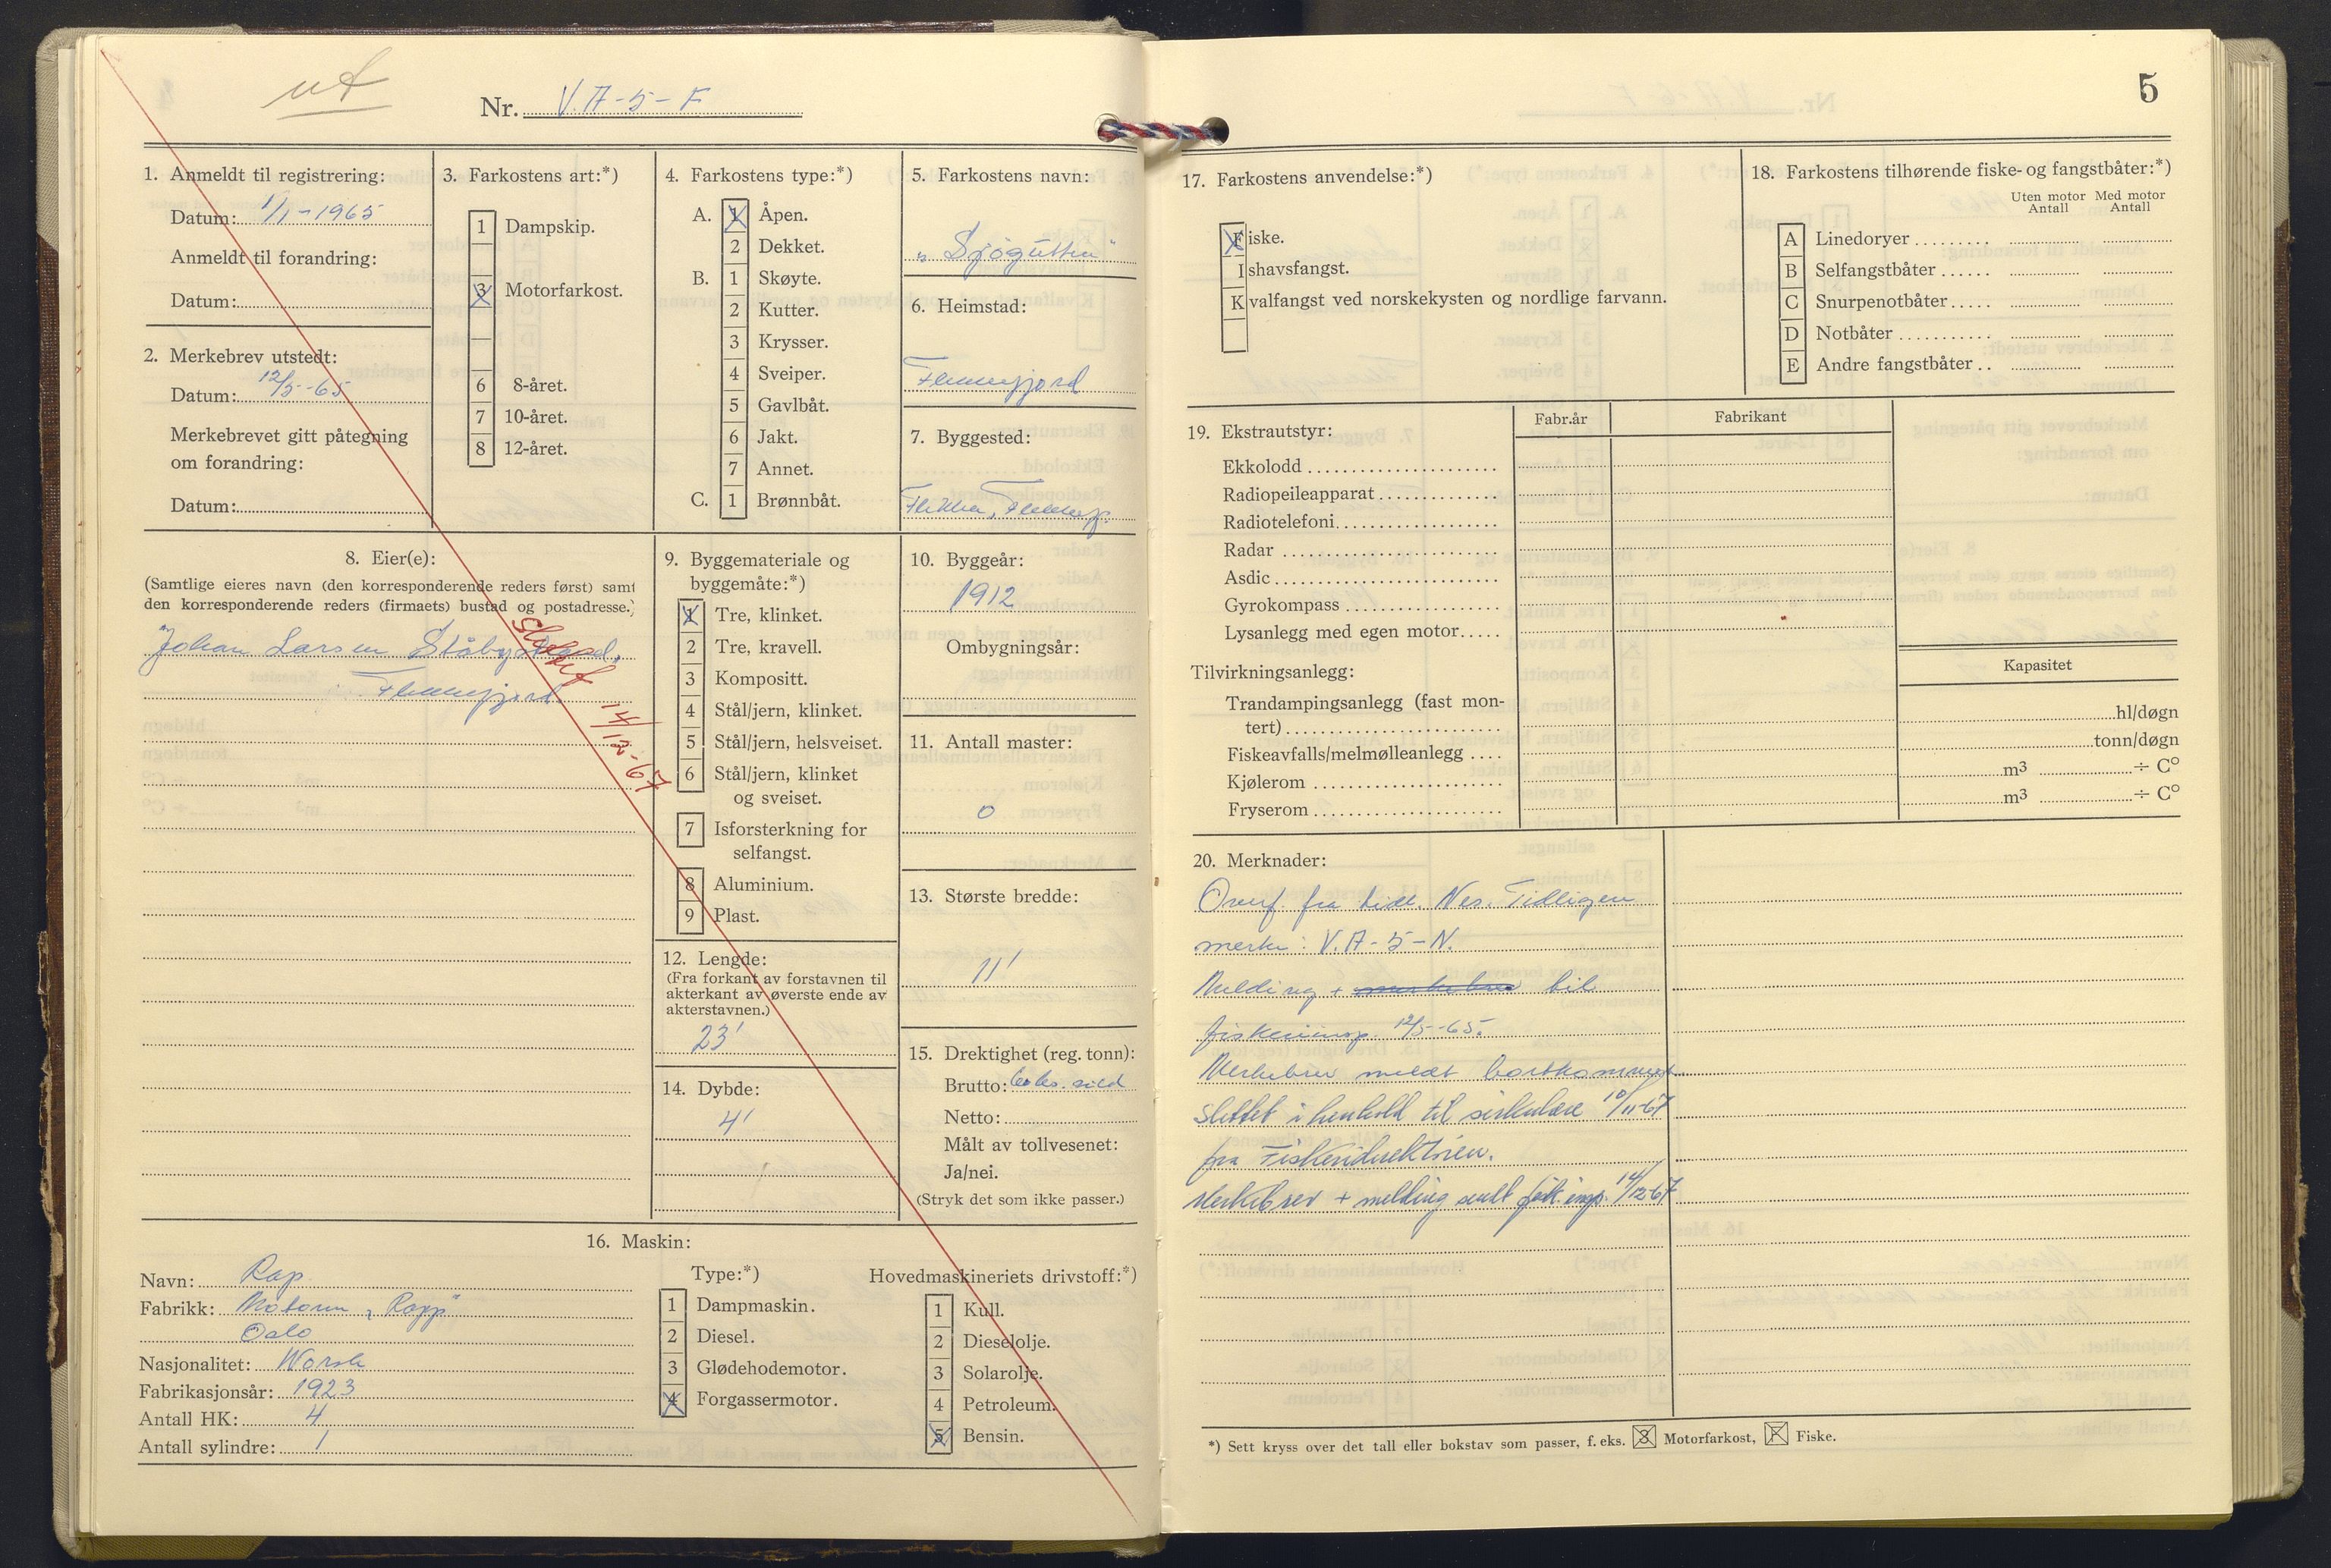 ut
Nr. V.A-5-F
1. Anmeldt til registrering:
Datum: 1/1-1965
Anmeldt til forandring:
Datum:
2. Merkebrev utstedt:
Datum: 12/5-65
Merkebrevet gitt påtegning
om forandring:
Datum:
3. Farkostens art:*)
1 Dampskip.
3 Motorfarkost.
6 8-året.
7 10-året.
8 12-året.
4. Farkostens type:*)
A. 1 Åpen.
2 Dekket.
B. 1 Skøyte.
2 Kutter.
3 Krysser.
4 Sveiper.
5 Gavlbåt.
6 Jakt.
7 Annet.
C. 1 Brønnbåt.
5. Farkostens navn:
"Sjøgutten"
6. Heimstad:
Flekkefjord
7. Byggested:
Flikka, Flekkefj.
8. Eier(e):
(Samtlige eieres navn (den korresponderende reders først) samt
den korresponderende reders (firmaets) bustad og postadresse.)
Johan Larsen
Flekkefjord
Slettet
14/12-67
9. Byggemateriale og
byggemåte:*)
1 Tre, klinket.
2 Tre, kravell.
3 Kompositt.
4 Stål/jern, klinket.
5 Stål/jern, helsveiset.
6 Stål/jern, klinket
og sveiset.
7 Isforsterkning for
selfangst.
8 Aluminium.
9 Plast.
10. Byggeår:
1912
Ombygningsår:
11. Antall master:
0
12. Lengde:
(Fra forkant av forstavnen til
akterkant av øverste ende av
akterstavnen.)
23'
13. Største bredde:
11'
14. Dybde:
4'
15. Drektighet (reg. tonn):
Brutto: sild
Netto:
Målt av tollvesenet:
Ja/nei.
(Stryk det som ikke passer.)
16. Maskin:
Navn: Rap.
Fabrikk: Motoren "Rapp"
Oslo
Nasjonalitet: Norsk
Fabrikasjonsår: 1923
Antall HK: 4
Antall sylindre: 1
Type:*)
1 Dampmaskin.
2 Diesel.
3 Glødehodemotor.
4 Forgassermotor.
Hovedmaskineriets drivstoff:*)
1 Kull.
2 Dieselolje.
3 Solarolje.
4 Petroleum.
5 Bensin.
5
17. Farkostens anvendelse:*)
Fiske.
Ishavsfangst.
Kvalfangst ved norskekysten og nordlige farvann.
18. Farkostens tilhørende fiske- og fangstbåter:*)
Uten motor Med motor
Antall Antall
A Linedoryer
B Selfangstbåter
C Snurpenotbåter
D Notbåter
E Andre fangstbåter
19. Ekstrautstyr:
Fabr.år
Fabrikant
Ekkolodd
Radiopeileapparat
Radiotelefoni
Radar
Asdic
Gyrokompass
Lysanlegg med egen motor
Tilvirkningsanlegg:
Kapasitet
Trandampingsanlegg (fast mon-
tert) hl/døgn
Fiskeavfalls/melmølleanlegg tonn/døgn
Kjølerom m3 ÷ C°
Fryserom m3 ÷ C°
20. Merknader:
Overf. fra tidl. Nes. Tidligere
merke: V.A-5-N.
Melding + merkebrev til
fiskeriinsp. 12/5-65.
Merkebrev meldt bortkommet
Slettet i henhold til sirkulære 10/11-67
fra Fiskeridirektøren.
Merkebrev + melding sendt fisk.insp. 14/12-67
*) Sett kryss over det tall eller bokstav som passer, f. eks. 3 Motorfarkost, F Fiske.